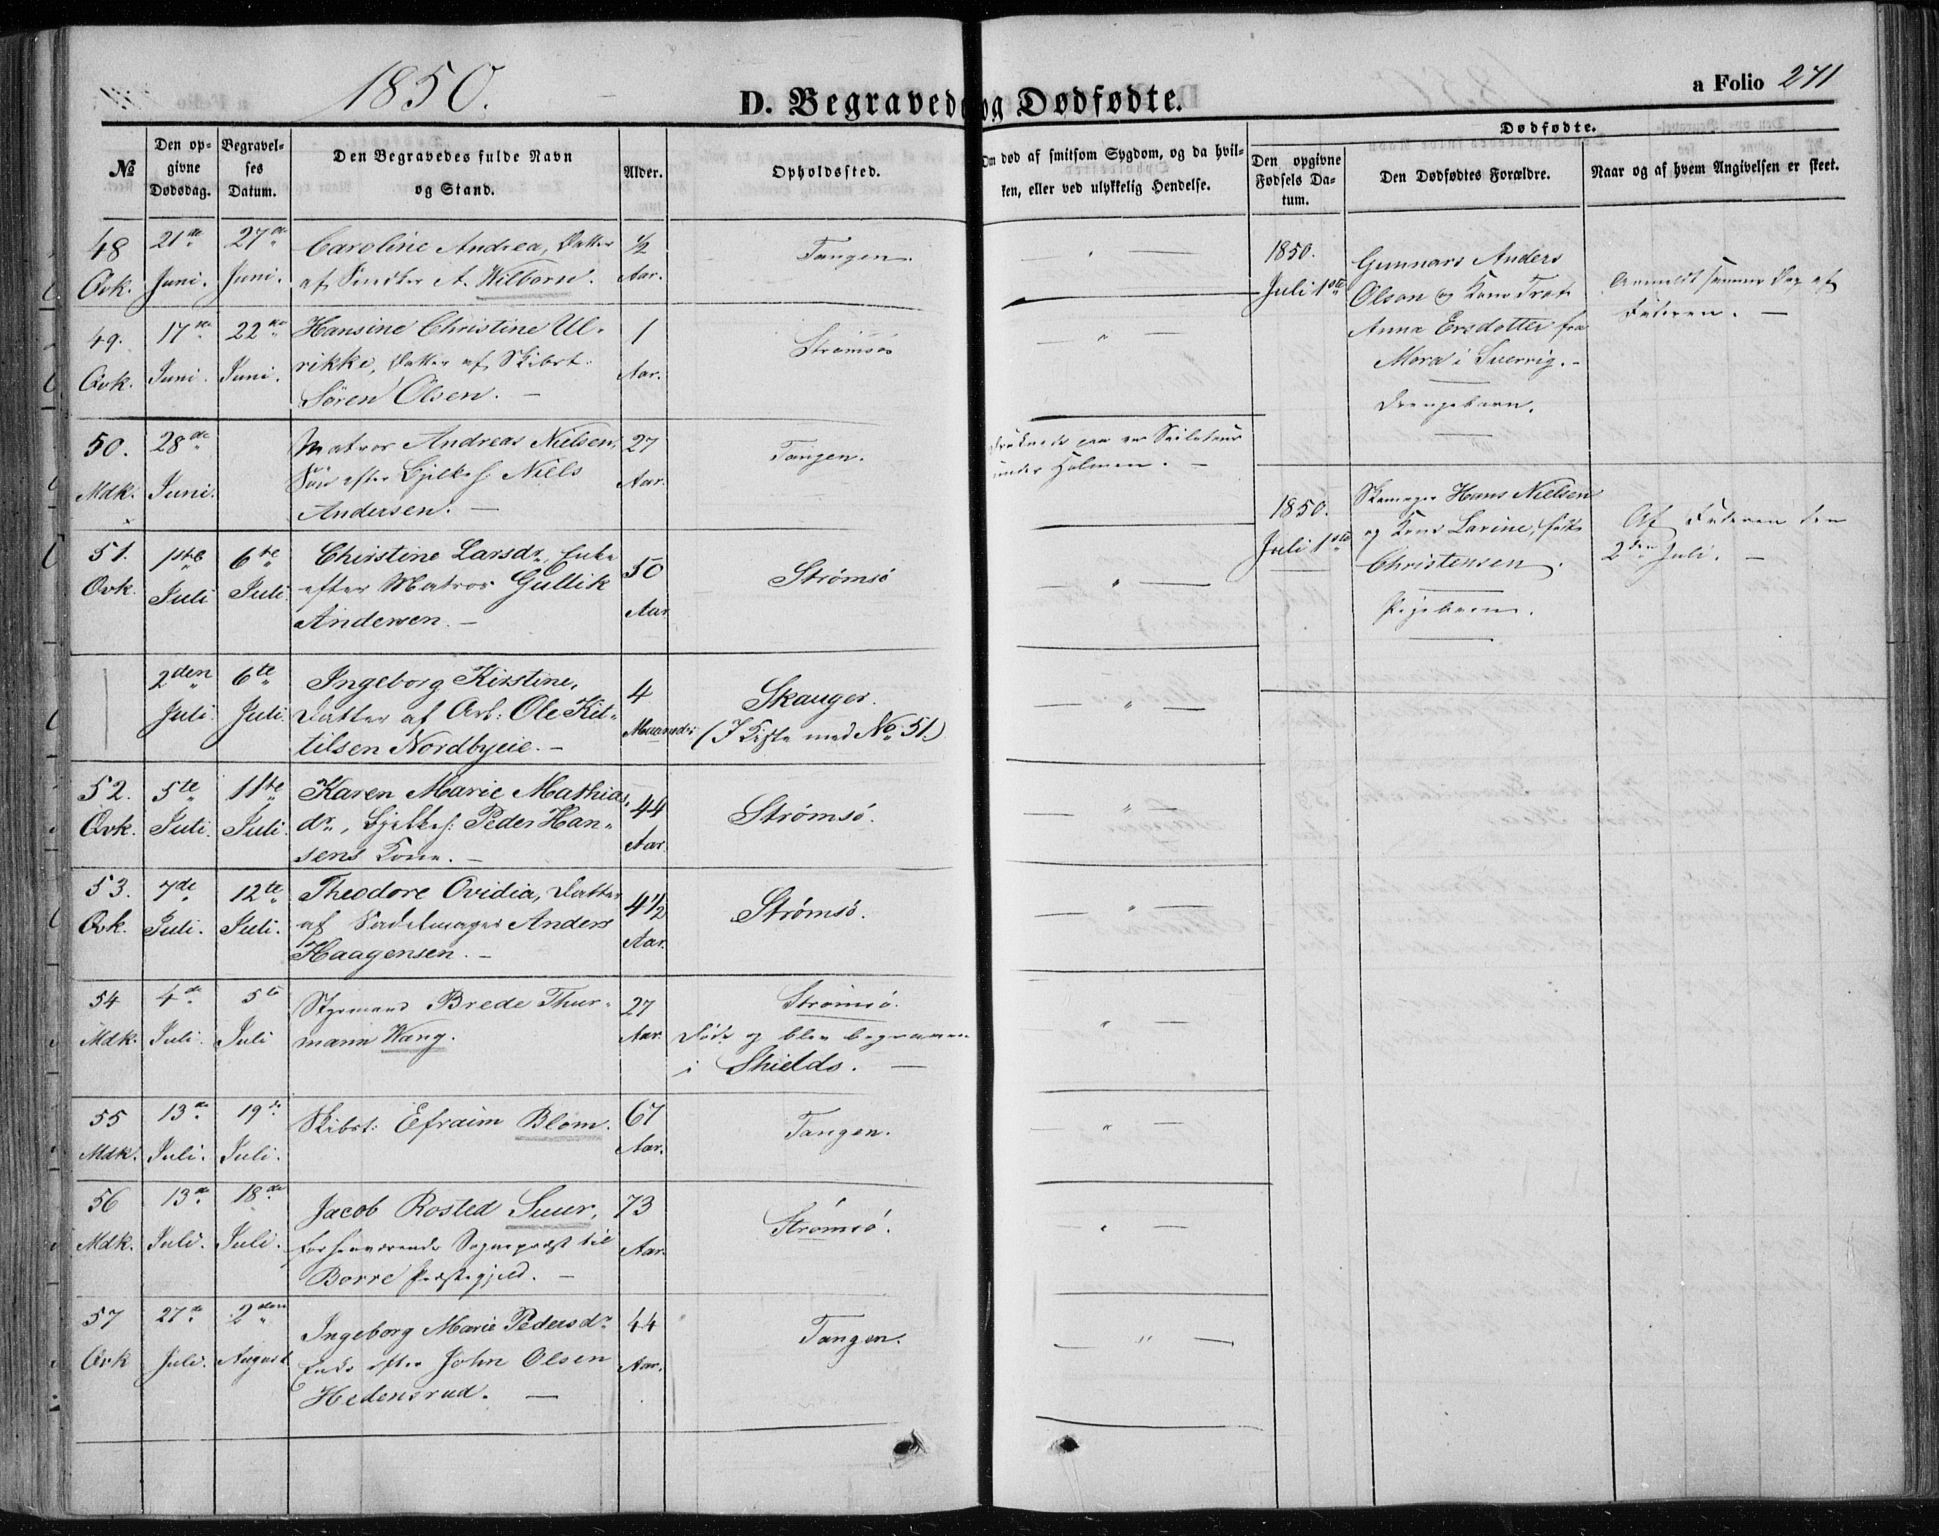 1850.
D. Begravede og Dødfødte.
a Folio 271
№
Den opgivne Dødsdag.
Begravelses Datum.
Den Begravedes fulde Navn og Stand.
Alder.
Opholdssted.
Om død af smitsom Sygdom, og da hvilken, eller ved ulykkelig Hendelse.
Dødfødte.
Den opgivne Fødsels Datum.
Den Dødfødtes Forældre.
Naar og af hvem Angivelsen er skeet.
48 21de 27de Caroline Andrea, Datter ½ Tangen. "
Qvk. Juni. Juni. af Snedker A. Wilborn. Aar.
49. 17de 22de Hansine Christine Ul- 1 Strømsøe "
Qvk. Juni. Juni. rikke, Datter af Skibst. Aar.
Søren Olsen. —
50. 28de Matros Andreas Nielsen, 27 Tangen. druknede paa en Seiletour
Mdk. Juni. Søn efter Niels Aar. under Holmen. —
Andersen. —
51. 1ste 6te Christine Larsdr, Enke 50 Strømsø "
Qvk. Juli Juli. efter Matros Gullik Aar
Andersen. —
2den 6te Ingeborg Kirstine, 4 Skauger. "
Juli. Juli. Datter af Arb: Ole Kit- Maaneder (I Kiste med No. 51.)
tilsen Nordbyeie. —
52. 5te 11te Karen Marie Mathias- 44 Strømsø. "
Qvk. Juli. Juli. dr, Peder Han- Aar.
sens Kone. —
53. 7de 12te Theodore Ovidia, Datter 4½ Strømsø. "
Qvk. Juli. Juli. af Sadelmager Anders Aar.
Haagensen. —
54 4de 5te Styrmand Brede Thur- 27 Strømsø. "
Mdk. Juli. Juli mann Wang. Aar. Døde og blev begraven
i Shields. —
55 13de 19de Skibst: Efraim Blom. 67 Tangen. "
Mdk. Juli. Juli. Aar.
56 13de 18de Jacob Rosted Suur, 73 Strømsø. "
Mdk. Juli. Juli. forhenværende Sognepræst til Aar.
Borre Præstegjeld. —
57 27de 2den Ingeborg Marie Pedersdr 44 Tangen. "
Qvk Juli. August Enke efter John Olsen Aar.
Hedensrud. —
1850. Gunnars Anders Anmeldt samme Dag af
Juli 1ste Olson og Kone Faderen. —
Anna Ersdotter fra
Mora i Sverrig. —
Drengebarn.
1850. Skomager Hans Nielsen Af Faderen den
Juli 1ste og Kone Larine, født 2den Juli. —
Christensen.
Pigebarn.